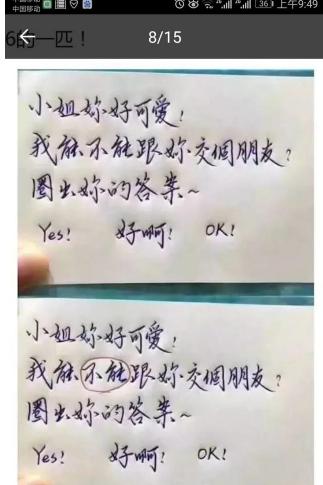 中国移动
中国移动
36
上午9:49
6的一匹！
8/15
小姐妳好可愛！
我能不能跟妳交個朋友？
圈出妳的答案~
Yes! 好啊! OK!
小姐妳好可愛！
我能不能跟妳交個朋友？
圈出妳的答案~
Yes! 好啊! OK!